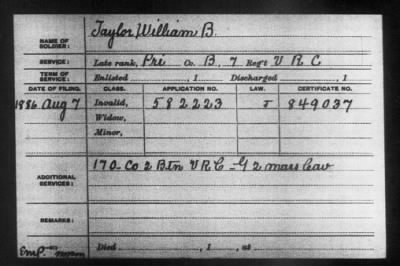 NAME OF SOLDIER: Taylor, William B.
SERVICE: Late rank, Pri Co. B, 7 Reg't V R C
TERM OF SERVICE: Enlisted , 1 Discharged , 1
DATE OF FILING. CLASS. APPLICATION NO. LAW. CERTIFICATE NO.
1886 Aug 7 Invalid, 582223 J 849037
Widow,
Minor,
ADDITIONAL SERVICES: 170 Co 2 Btn V R C - G 2 mass Cav
REMARKS:
Died , 1 , at